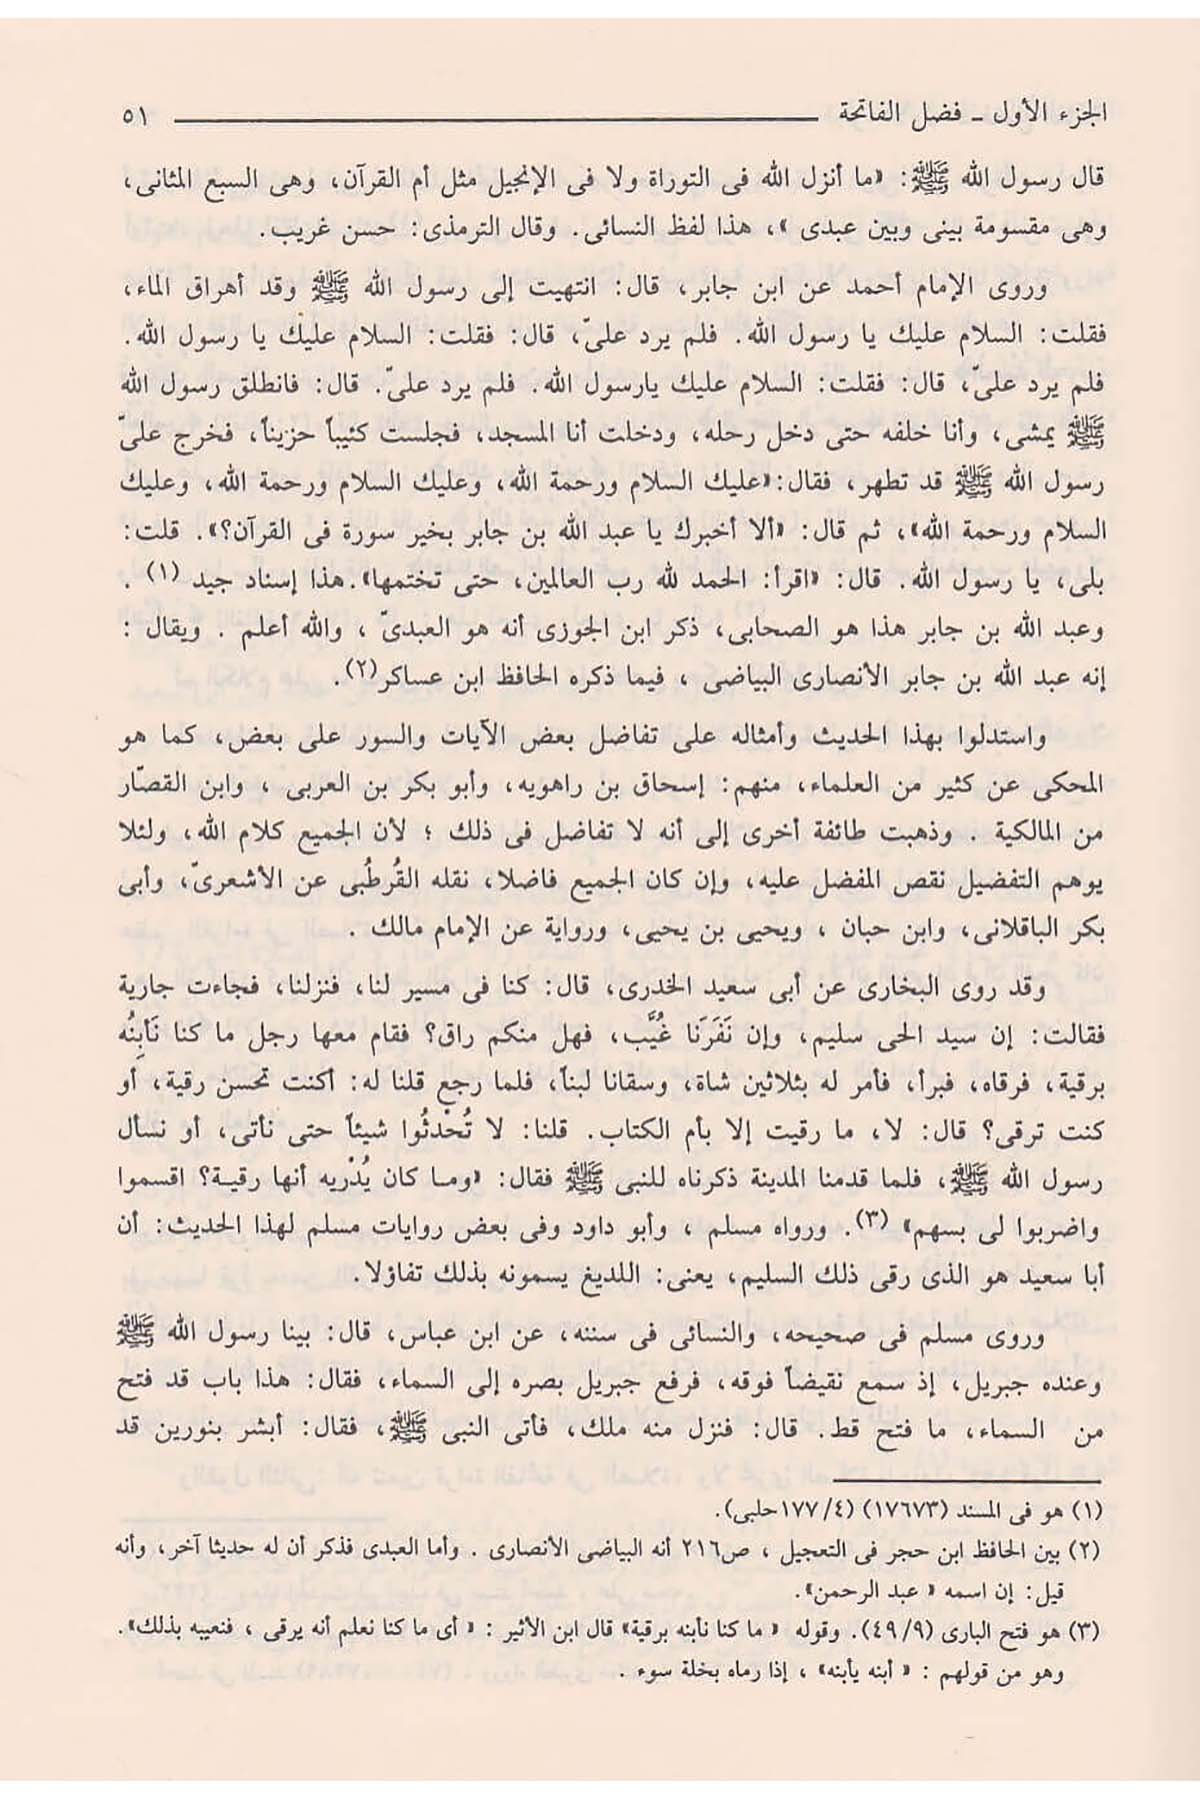 الجزء الأول ـ فضل الفاتحة ٥١
قال رسول الله ﷺ: «ما أنزل الله فى التوراة ولا فى الإنجيل مثل أم القرآن، وهى السبع المثانى،
وهى مقسومة بينى وبين عبدى »، هذا لفظ النسائى. وقال الترمذى: حسن غريب.
وروى الإمام أحمد عن ابن جابر، قال: انتهيت إلى رسول الله ﷺ وقد أهراق الماء،
فقلت: السلام عليك يا رسول الله. فلم يرد علىّ، قال: فقلت: السلام عليك يا رسول الله.
فلم يرد علىّ، قال: فقلت: السلام عليك يارسول الله. فلم يرد علىّ. قال: فانطلق رسول الله
ﷺ يمشى، وأنا خلفه حتى دخل رحله، ودخلت أنا المسجد، فجلست كئيباً حزيناً، فخرج علىّ
رسول الله ﷺ قد تطهر، فقال:«عليك السلام ورحمة الله، وعليك السلام ورحمة الله، وعليك
السلام ورحمة الله»، ثم قال: «ألا أخبرك يا عبد الله بن جابر بخير سورة فى القرآن؟». قلت:
بلى، يا رسول الله. قال: «اقرأ: الحمد لله رب العالمين، حتى تختمها».هذا إسناد جيد (١) .
وعبد الله بن جابر هذا هو الصحابى، ذكر ابن الجوزى أنه هو العبدىّ ، والله أعلم . ويقال :
إنه عبد الله بن جابر الأنصارى البياضى ، فيما ذكره الحافظ ابن عساكر(٢).
واستدلوا بهذا الحديث وأمثاله على تفاضل بعض الآيات والسور على بعض، كما هو
المحكى عن كثير من العلماء، منهم: إسحاق بن راهويه، وأبو بكر بن العربى ، وابن القصّار
من المالكية . وذهبت طائفة أخرى إلى أنه لا تفاضل فى ذلك ؛ لأن الجميع كلام الله، ولئلا
يوهم التفضيل نقص المفضل عليه، وإن كان الجميع فاضلا، نقله القُرطُبى عن الأشعرىّ، وأبى
بكر الباقلانى، وابن حبان ، ويحيى بن يحيى، ورواية عن الإمام مالك .
وقد روى البخارى عن أبى سعيد الخدرى، قال: كنا فى مسير لنا، فنزلنا، فجاءت جارية
فقالت: إن سيد الحى سليم، وإن نَفَرَنا غُيَّب، فهل منكم راق؟ فقام معها رجل ما كنا نَأبِنُه
برقية، فرقاه، فبرأ، فأمر له بثلاثين شاة، وسقانا لبناً، فلما رجع قلنا له: أكنت تحسن رقية، أو
كنت ترقى؟ قال: لا، ما رقيت إلا بأم الكتاب. قلنا: لا تُحْدثُوا شيئاً حتى نأتى، أو نسأل
رسول الله ﷺ، فلما قدمنا المدينة ذكرناه للنبى ﷺ فقال: «وما كان يُدْريه أنها رقية؟ اقسموا
واضربوا لى بسهم» (٣). ورواه مسلم ، وأبو داود وفى بعض روايات مسلم لهذا الحديث: أن
أبا سعيد هو الذى رقى ذلك السليم، يعنى: اللديغ يسمونه بذلك تفاؤلا.
وروى مسلم فى صحيحه، والنسائى فى سننه، عن ابن عباس، قال: بينا رسول الله ﷺ
وعنده جبريل، إذ سمع نقيضاً فوقه، فرفع جبريل بصره إلى السماء، فقال: هذا باب قد فتح
من السماء، ما فتح قط. قال: فنزل منه ملك، فأتى النبى ﷺ، فقال: أبشر بنورين قد
(١) هو فى المسند (١٧٦٧٣) (٤/ ١٧٧حلبى).
(٢) بين الحافظ ابن حجر فى التعجيل ، ص٢١٦ أنه البياضى الأنصارى . وأما العبدى فذكر أن له حديثا آخر، وأنه
قيل: إن اسمه « عبد الرحمن».
(٣) هو فتح البارى (٩/ ٤٩). وقوله « ما كنا نأبنه برقية» قال ابن الأثير : « أى ما كنا نعلم أنه يرقى ، فنعيبه بذلك».
وهو من قولهم : « أبنه يأبنه» ، إذا رماه بخلة سوء .